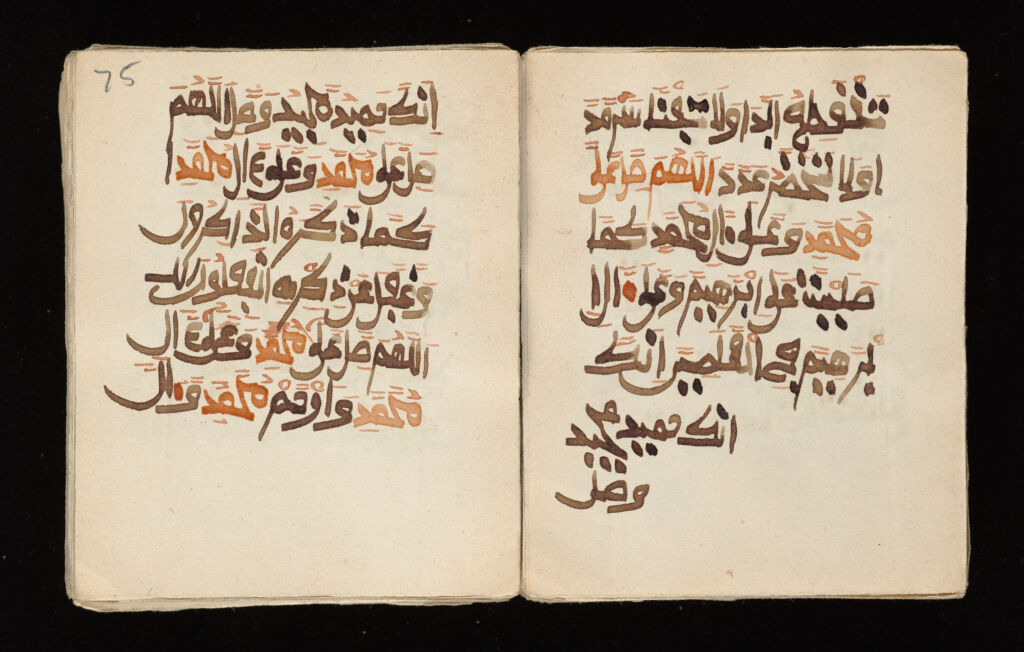 تنقطع ابدا ولا تفنى سرمد
اولا تنحصر عددا اللهم صل على
محمد وعلى ال محمد كما
صليت على ابرهيم وعلى ال ا
برهيم في العلمين انك
انك حميد مجيد
وصل
75
انك حميد مجيد اللهم
صل على محمد وعلى ال محمد
كما ذكره الذاكرون
وغفل عن ذكره الغفلون
اللهم صل على محمد وعلى ال
محمد وارحم محمد وال